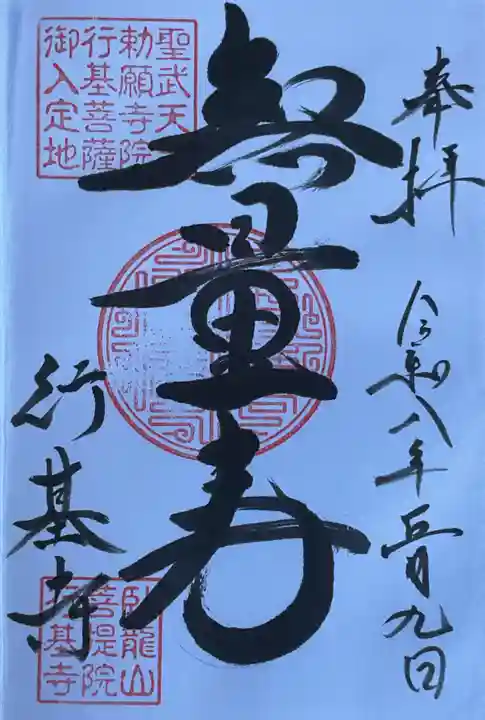 奉拝
令和八年 月九日
無量寿
聖武天
勅願寺院
行基菩薩
御入定地
行基寺
臥龍山
菩提院
行基寺